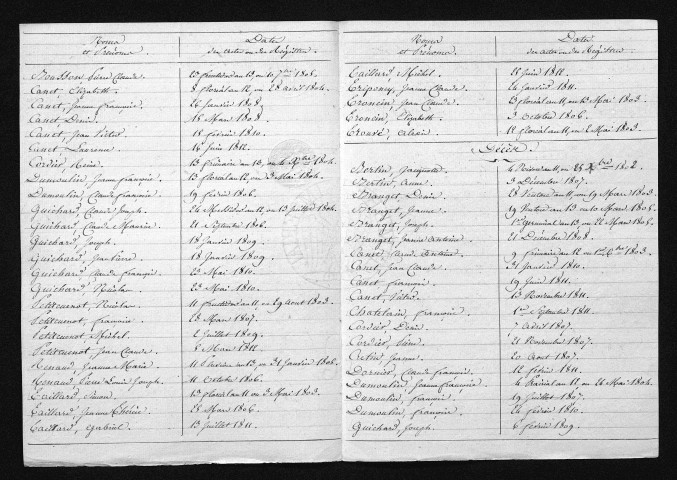 Noms et Prénoms
Dates des actes ou des Registres
Mousson, Claude. 23 fructidor an 13 ou 10 7bre 1805.
Canet, Elizabeth. 8 floréal an 12 ou 28 avril 1804.
Canet, Jeanne françoise. 26 Janvier 1808.
Canet, Denis. 16 Mars 1808.
Canet, Jean Pierre. 18 février 1810.
Canet, 16 Juin 1812.
Cordier, Reine. 13 frimaire an 13, ou 4 Xbre 1804.
Dumoulin, Jeanne françoise. 13 floréal an 12, ou 3 Mai 1804.
Dumoulin, Claude françois. 19 février 1806.
Guichard, Claude Joseph. 24 Messidor an 12 ou 13 Juillet 1804.
Guichard, Claude Maurice. 21 Septembre 1806.
Guichard, Joseph. 18 Janvier 1809.
Guichard, Jean Pierre. 18 Janvier 1809.
Guichard, Claude françois. 23 Mai 1810.
Guichard, 23 Mai 1810.
Petitcuenot, 11 fructidor an 11 ou 29 aout 1803.
Petitcuenot, françois. 28 Mars 1807.
Petitcuenot, Michel. 2 Juillet 1809.
Petitcuenot, Jean Claude. 8 Mars 1812.
Renaud, Jeanne Marie. 11 Pluviose an 13, ou 31 Janvier 1805.
Renaud, Pierre Louis Joseph. 11 octobre 1806.
Taillard, 13 floréal an 11 ou 3 Mai 1803.
Taillard, Jeanne Thérèse. 28 Mars 1806.
Taillard, Gabriel. 13 Juillet 1811.
Noms et Prénoms
Dates des actes ou des Registres
Taillard, Michel. 21 Juin 1812.
Jeanne Claude. 24 Janvier 1811.
Troncin, Jean Claude. 13 floréal an 11, ou 3 Mai 1803.
Troncin, Elizabeth. 3 octobre 1806.
Trouvé, alexis. 12 floréal an 11, ou 2 Mai 1803.
Décès.
Bertin, Jacques. 1802.
Bertin, anne. 3 Décembre 1807.
Branget, Denis. 28 Ventose an 11, ou 19 Mars 1803.
Branget, Jeanne. 19 Ventose an 13 ou 10 Mars 1805.
Branget, Joseph. 1er germinal an 13, ou 22 Mars 1805.
Branget, Jeanne antoine. 21 Décembre 1808.
Canet, 9 frimaire an 12 ou 1er Xbre 1803.
Canet, Jean Claude. 21 Janvier 1810.
Canet, françois. 19 Juin 1811.
Canet, Pierre. 13 Novembre 1811.
Chatelain, françoise. 1er Septembre 1811.
Cordier, Denis. 7 avril 1807.
Cordier, 21 Novembre 1807.
Cretin, Jeanne. 20 aout 1807.
Dornier, Claude françois. 12 février 1811.
Dumoulin, Jeanne françoise. 6 Prairial an 12, ou 26 Mai 1804.
Dumoulin, françois. 19 Juillet 1807.
Dumoulin, françoise. 24 février 1810.
Guichard, Joseph. 6 février 1809.